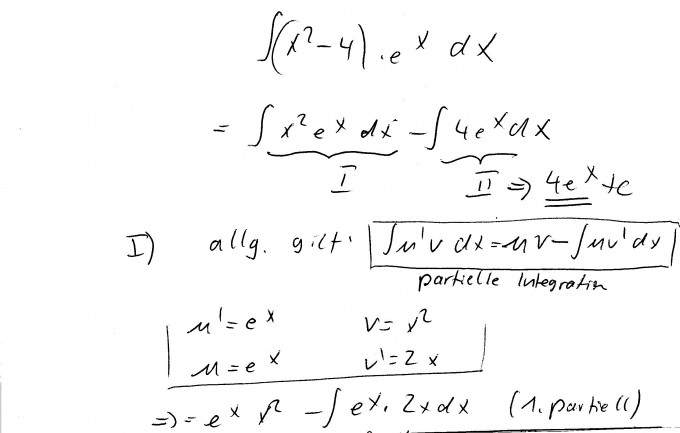 ∫(x²-4)·eˣ dx
= ∫x²eˣ dx - ∫4eˣdx
I II ⇒ 4eˣ+c
I) allg. gilt: ∫u'v dx=uv-∫uv'dx
partielle Integration
u'=eˣ v=x²
u=eˣ v'=2x
⇒ = eˣ x² - ∫eˣ·2xdx (1. partiell)